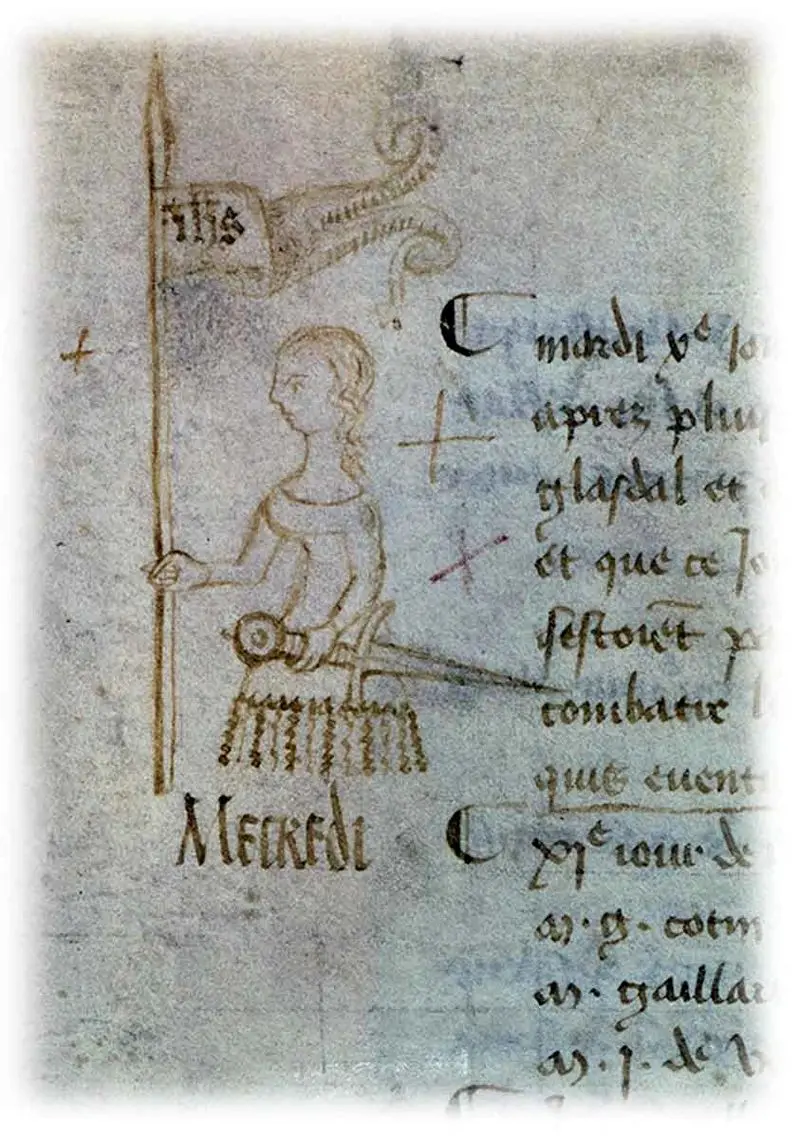 ihs
mardi xe jou
aprez plus
glasdal et
et que ce Jo
sestoiēt po
combatre l
quis event
MECREDI
xie iour de
m. g. cotin
m. gaillar
m. J. de b